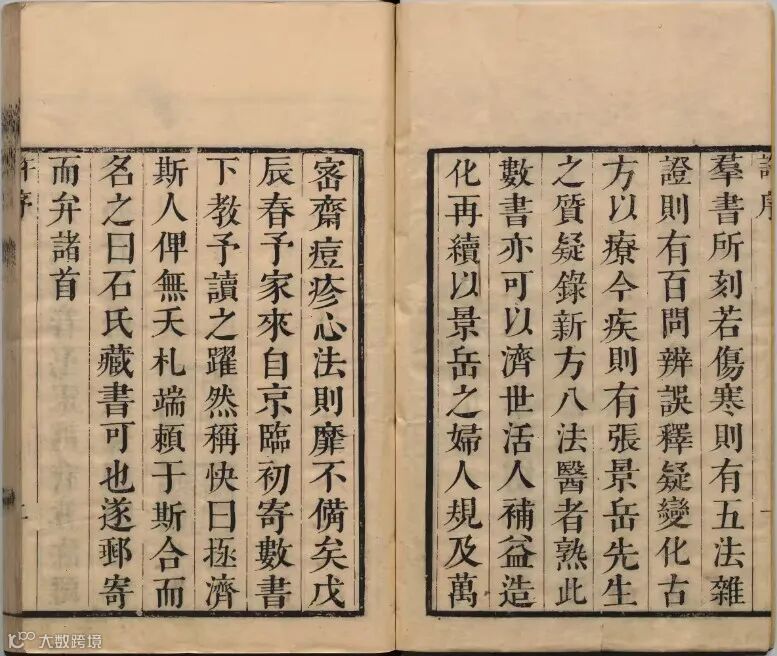 羣書所刻若傷寒則有五法雜
證則有百問辨誤釋疑變化古
方以療今疾則有張景岳先生
之質疑錄新方八法醫者熟此
數書亦可以濟世活人補益造
化再續以景岳之婦人規及萬
密齋痘疹心法則靡不備矣戊
辰春予家來自京臨初寄數書
下教予讀之躍然稱快曰拯濟
斯人俾無夭札端賴于斯合而
名之曰石氏藏書可也遂郵寄
而弁諸首
序
大数跨境